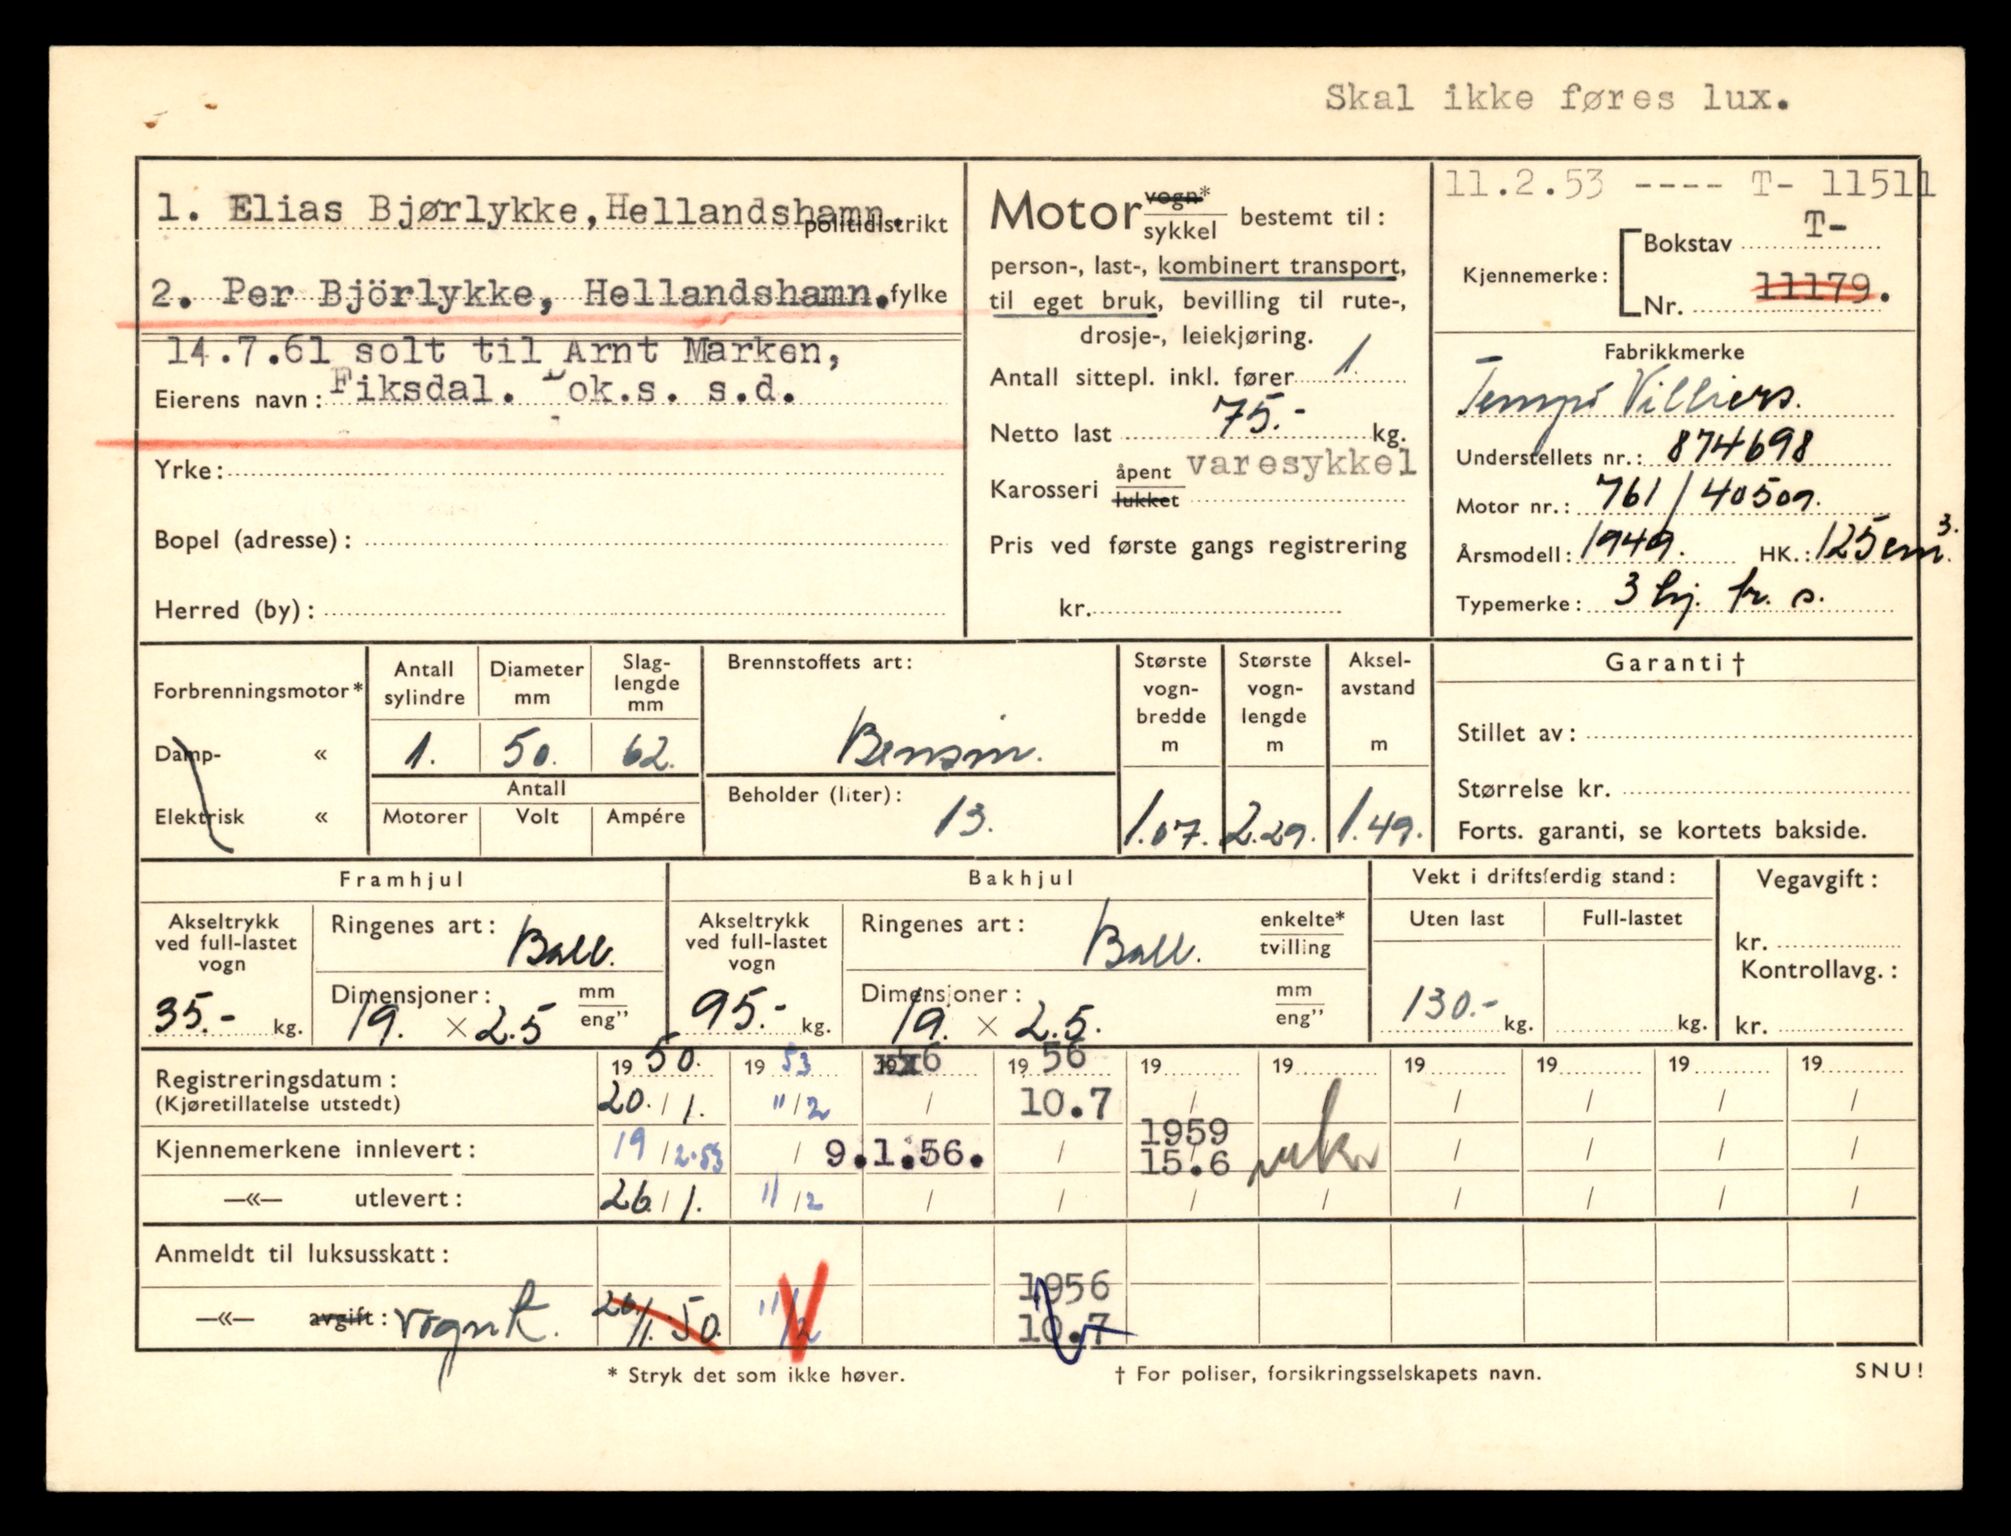 Skal ikke føres lux.
1. Elias Bjørlykke, Hellandshamn.
politidistrikt
2. Per Björlykke, Hellandshamn. fylke
14.7.61 solt til Arnt Marken,
Eierens navn: Fiksdal. ok.s. s.d.
Yrke:
Bopel (adresse):
Herred (by):
Motor vogn* sykkel bestemt til:
person-, last-, kombinert transport,
til eget bruk, bevilling til rute-,
drosje-, leiekjøring.
Antall sittepl. inkl. fører 1.
Netto last 75.- kg.
Karosseri åpent lukket varesykkel
Pris ved første gangs registrering
kr.
11.2.53 ---- T- 11511
Kjennemerke: Bokstav T-
Nr. 11179.
Fabrikkmerke
Tempo Villiers.
Understellets nr.: 874698
Motor nr.: 761/40509.
Årsmodell: 1949. HK.: 125 cm3.
Typemerke: 3 hj. fr. s.
Forbrenningsmotor*
Damp- «
Elektrisk «
Antall sylindre Diameter mm Slag-lengde mm
1. 50. 62.
Antall
Motorer Volt Ampére
Brennstoffets art:
Bensin.
Beholder (liter):
13.
Største vogn-bredde m Største vogn-lengde m Aksel-avstand m
1.07. 2.29. 1.49.
Garanti †
Stillet av:
Størrelse kr.
Forts. garanti, se kortets bakside.
Framhjul
Akseltrykk ved full-lastet vogn
35.- kg.
Ringenes art: Ball.
Dimensjoner: mm eng"
19. × 2.5
Bakhjul
Akseltrykk ved full-lastet vogn
95.- kg.
Ringenes art: Ball. enkelte* tvilling
Dimensjoner: mm eng"
19. × 2.5.
Vekt i driftsferdig stand:
Uten last Full-lastet
130.- kg. kg.
Vegavgift:
kr.
Kontrollavg.:
kr.
19 50. 19 53 6 19 56 19 19 19 19 19 19
Registreringsdatum:
(Kjøretillatelse utstedt) 20./1. 11/2 / 10.7 / / / / /
Kjennemerkene innlevert: 19/2.53 / 9.1.56. / 1959 15.6 / / / /
—«— utlevert: 26/1. 11/2 / / / / / / / /
Anmeldt til luksusskatt:
—«— avgift: vognk. 26/1.50. 11/2 1956 10.7
* Stryk det som ikke høver.
† For poliser, forsikringsselskapets navn.
SNU!